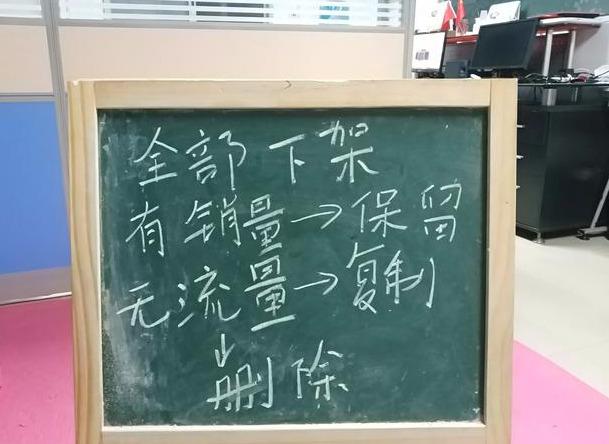 全部下架
有销量→保留
无流量→复制
↓
删除